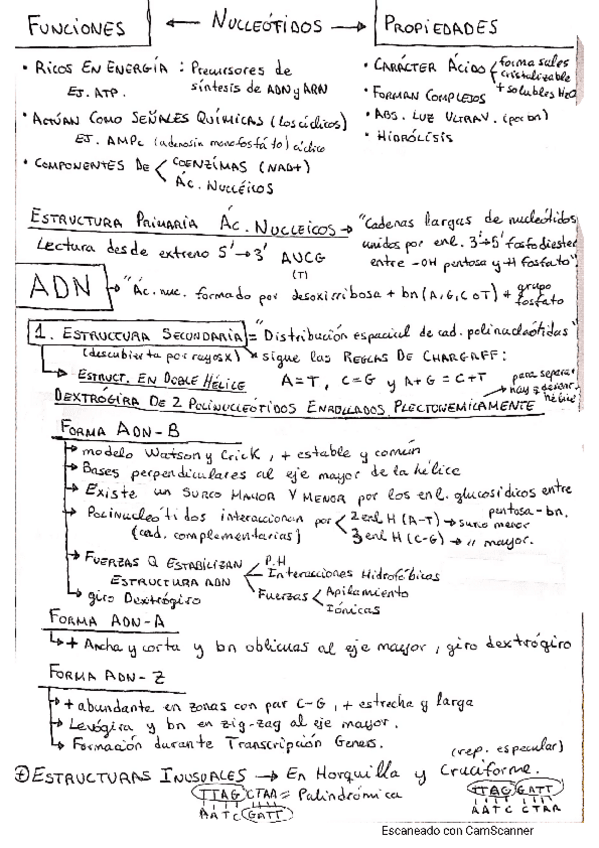 FUNCIONES ← NUCLEÓTIDOS → PROPIEDADES
• RICOS EN ENERGÍA : Precursores de
síntesis de ADN y ARN
EJ. ATP.
• ACTÚAN COMO SEÑALES QUÍMICAS (Los cíclicos)
EJ. AMPc (adenosin monofosfato) cíclico
• COMPONENTES DE < COENZIMAS (NAD+)
ÁC. NUCLÉICOS
• CARÁCTER ÁCIDO < forma sales
cristalizable
+ solubles H2O
• FORMAN COMPLEJOS
• ABS. LUZ ULTRAV. (por bn)
• HIDRÓLISIS
ESTRUCTURA PRIMARIA ÁC. NUCLEICOS → "Cadenas largas de nucleótidos
unidos por enl. 3'→5' fosfodiester
entre -OH pentosa y -H fosfato"
Lectura desde extremo 5'→3' AUCG
(T)
ADN → "Ác. nuc. formado por desoxirribosa + bn (A, G, C o T) + grupo
fosfato
1. ESTRUCTURA SECUNDARIA = "Distribución espacial de cad. polinucleótidas"
(descubierta por rayos X) sigue las REGLAS DE CHARGAFF:
→ ESTRUCT. EN DOBLE HÉLICE A=T, C=G y A+G = C+T
para separar
hay q desenr.
hélice
DEXTRÓGIRA DE 2 POLINUCLEÓTIDOS ENROLLADOS PLECTONEMICAMENTE
FORMA ADN-B
→ modelo Watson y Crick, + estable y común
→ Bases perpendiculares al eje mayor de la hélice
→ Existe un SURCO MAYOR Y MENOR por los enl. glucosídicos entre
pentosa - bn.
→ Polinucleótidos interaccionan por < 2 enl H (A-T) → surco menor
(cad. complementarias) 3 enl H (C-G) → " mayor.
→ FUERZAS Q ESTABILIZAN < P.H
ESTRUCTURA ADN Interacciones Hidrofóbicas
Fuerzas < Apilamiento
Iónicas
→ giro Dextrógiro
FORMA ADN-A
→ + Ancha y corta y bn oblicuas al eje mayor, giro dextrógiro
FORMA ADN-Z
→ + abundante en zonas con par C-G, + estrecha y larga
→ Levógira y bn en zig-zag al eje mayor.
→ Formación durante Transcripción Genes.
(rep. especular)
ESTRUCTURAS INUSUALES → En Horquilla y Cruciforme.
TTAG CTAA = Palindrómica
AATC GATT
TTAG GATT
AATC CTAA
Escaneado con CamScanner